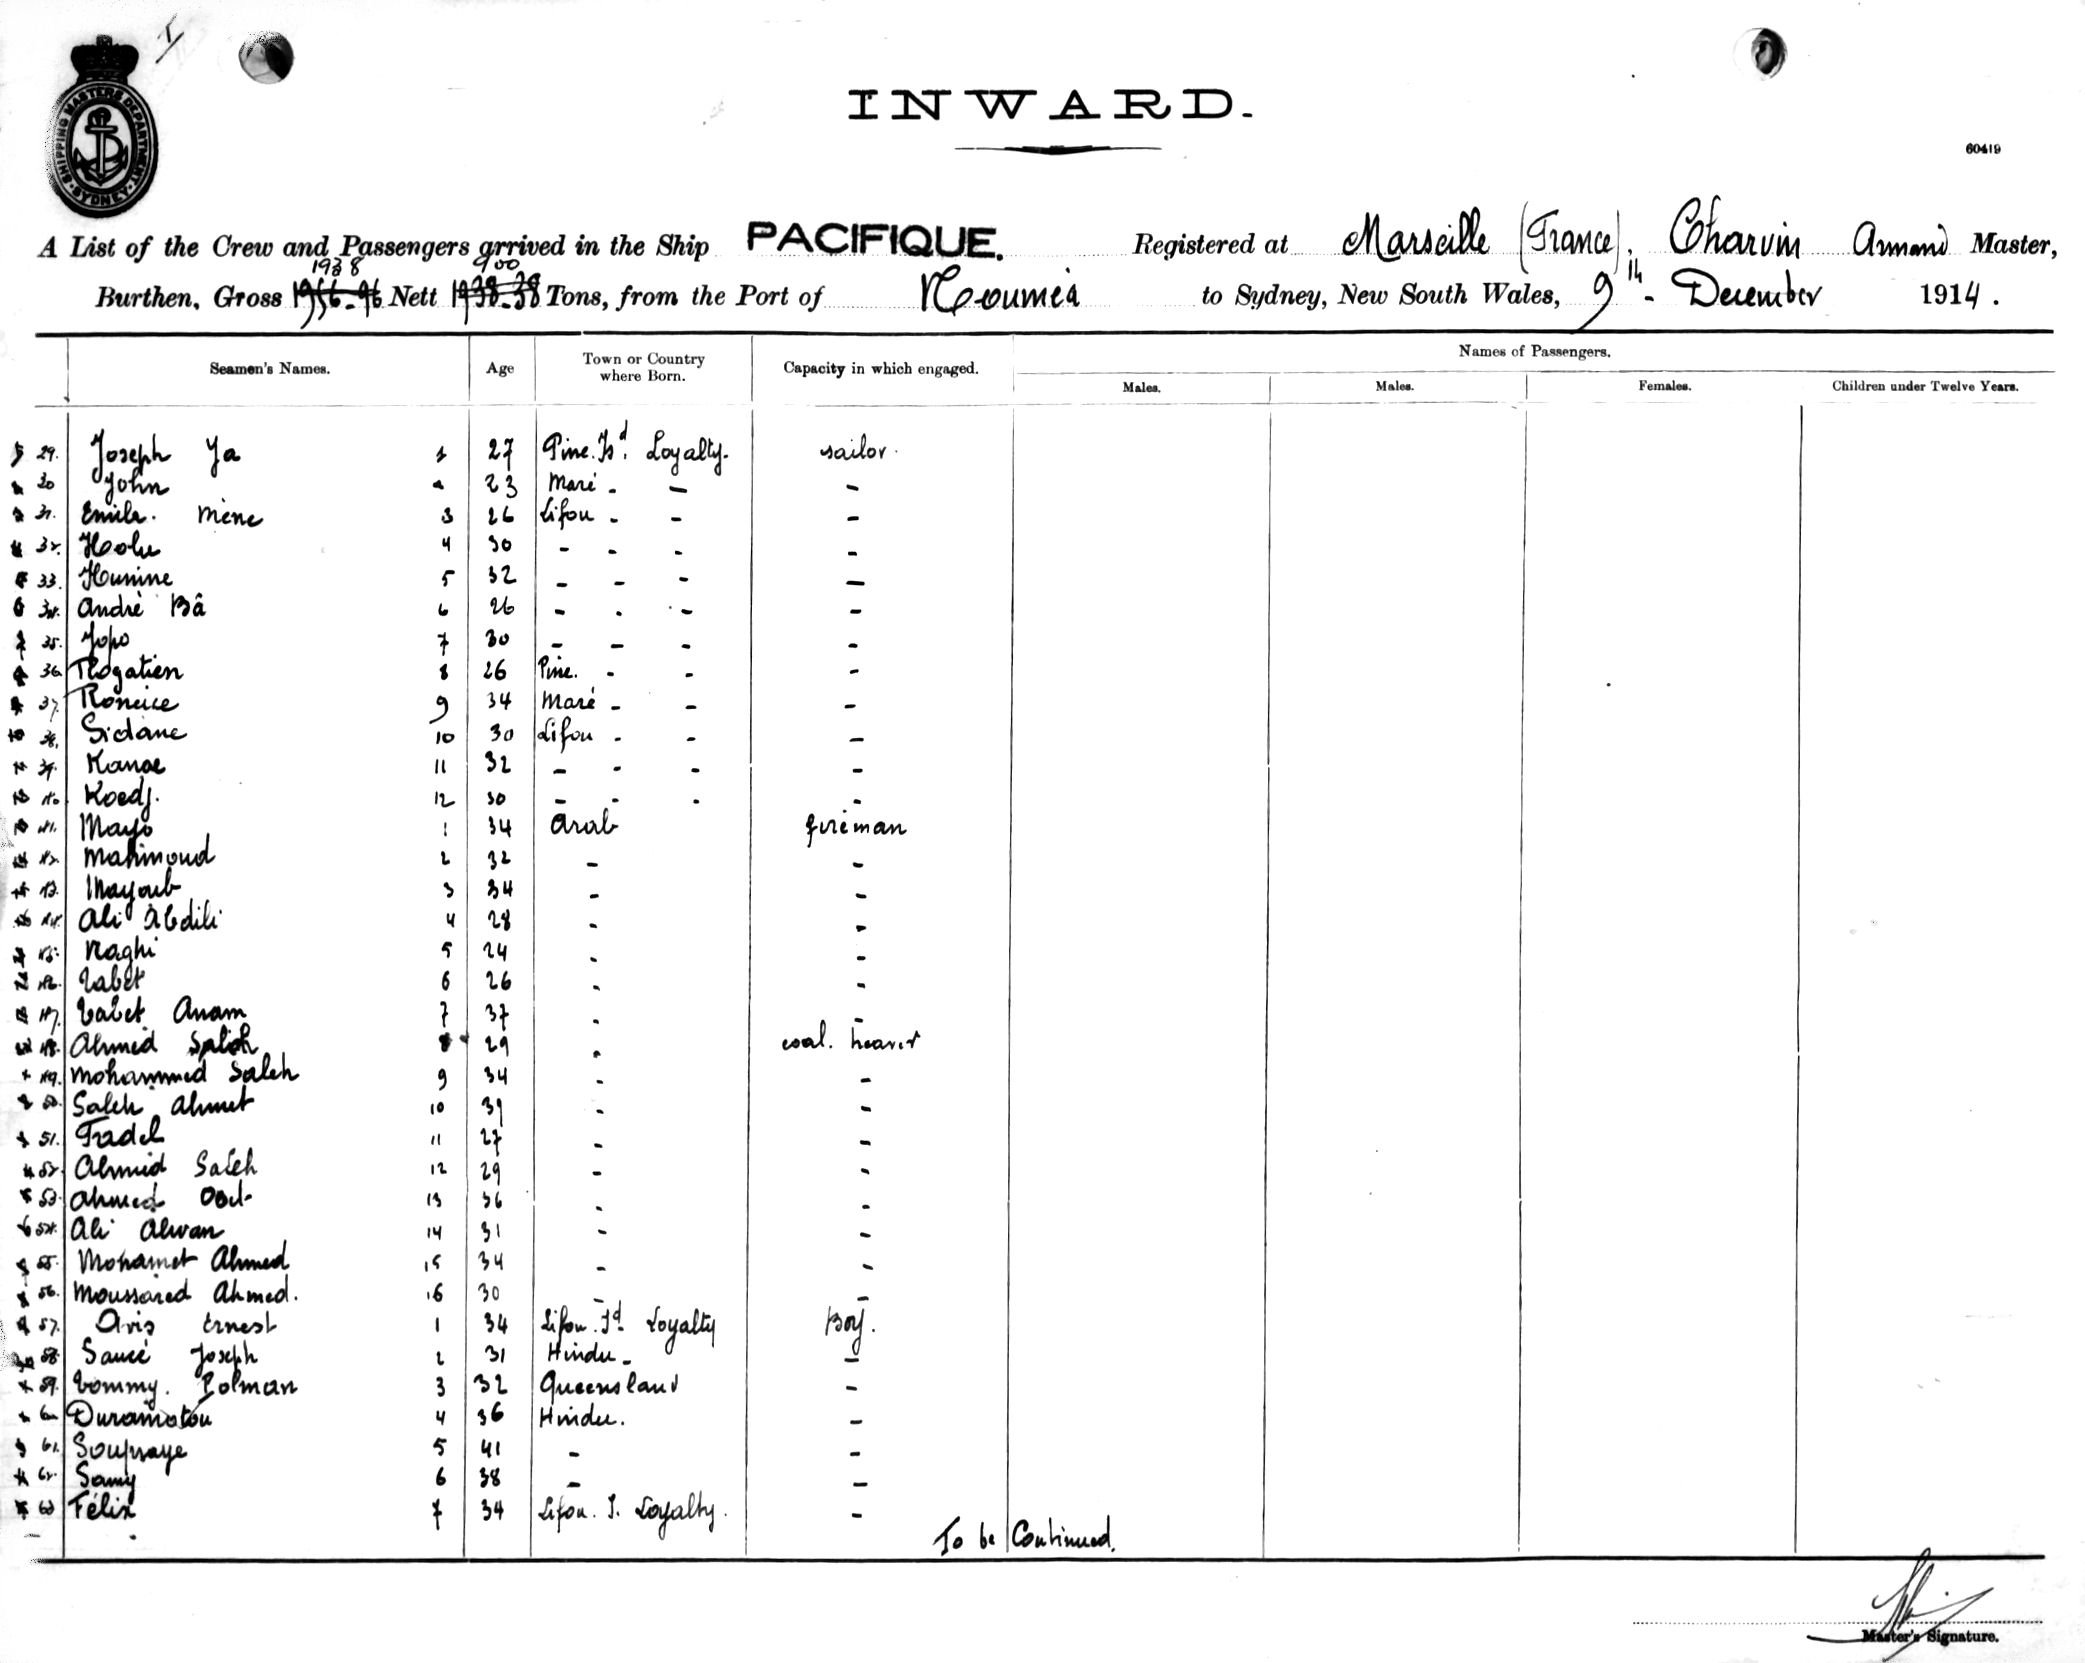 SHIPPING MASTERS DEPARTMENT SYDNEY
INWARD.
60419
A List of the Crew and Passengers arrived in the Ship PACIFIQUE. Registered at Marseille (France), Charvin Armand Master,
1938 900
Burthen, Gross 1956-96 Nett 1938-38 Tons, from the Port of Nouméa to Sydney, New South Wales, 9th - December 1914.
Seamen's Names. Age Town or Country where Born. Capacity in which engaged. Names of Passengers.
Males. Males. Females. Children under Twelve Years.
29. Joseph Ya 1 27 Pine. Isd. Loyalty. sailor.
30 John 23 Maré - - -
31. Emile. Mène 3 26 Lifou - - -
32. 4 30 - - - -
33. Hunine 5 32 - - - -
34. André Bâ 6 26 - - - -
35. Jopo 7 30 - - - -
36. Rogatien 8 26 Pine. - - -
37. 9 34 Maré - - -
38. Sidane 10 30 Lifou - - -
39. Kanae 11 32 - - - -
40. Koedj. 12 30 - - - -
41. Mayo 1 34 Arab fireman
42. Mahmoud 2 32 - -
43. Mayoub 3 34 - -
44. Ali Abdili 4 28 - -
45. Naghi 5 24 - -
46. Tabet 6 26 - -
47. Tabet Anam 7 37 - -
48. Ahmed Saleh 8 29 - coal. heaver
49. Mohammed Saleh 9 34 - -
50. Saleh Ahmet 10 39 - -
51. Fadel 11 27 - -
52. Ahmed Saleh 12 29 - -
53. Ahmed 13 36 - -
54. Ali Alwan 14 31 - -
55. Mohamet Ahmed 15 34 - -
56. Moussaied Ahmed. 16 30 - -
57. Avis Ernest 1 34 Lifou. Id. Loyalty Boy.
58. Saucé Joseph 2 31 Hindu - -
59. Tommy. Polman 3 32 Queensland -
60 Duramotou 4 36 Hindu. -
61. Soupraye 5 41 - -
62. Samy 6 38 - -
63 Félix 7 34 Lifou. I. Loyalty. -
To be Continued.
Master's Signature.